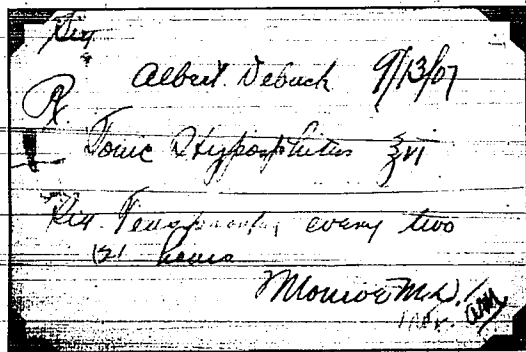 Albert. Debuck 9/13/07
Rx
Tonic Hypophosphites ℥vi
Teaspoonful every two
(2) hours
Monroe M.D.